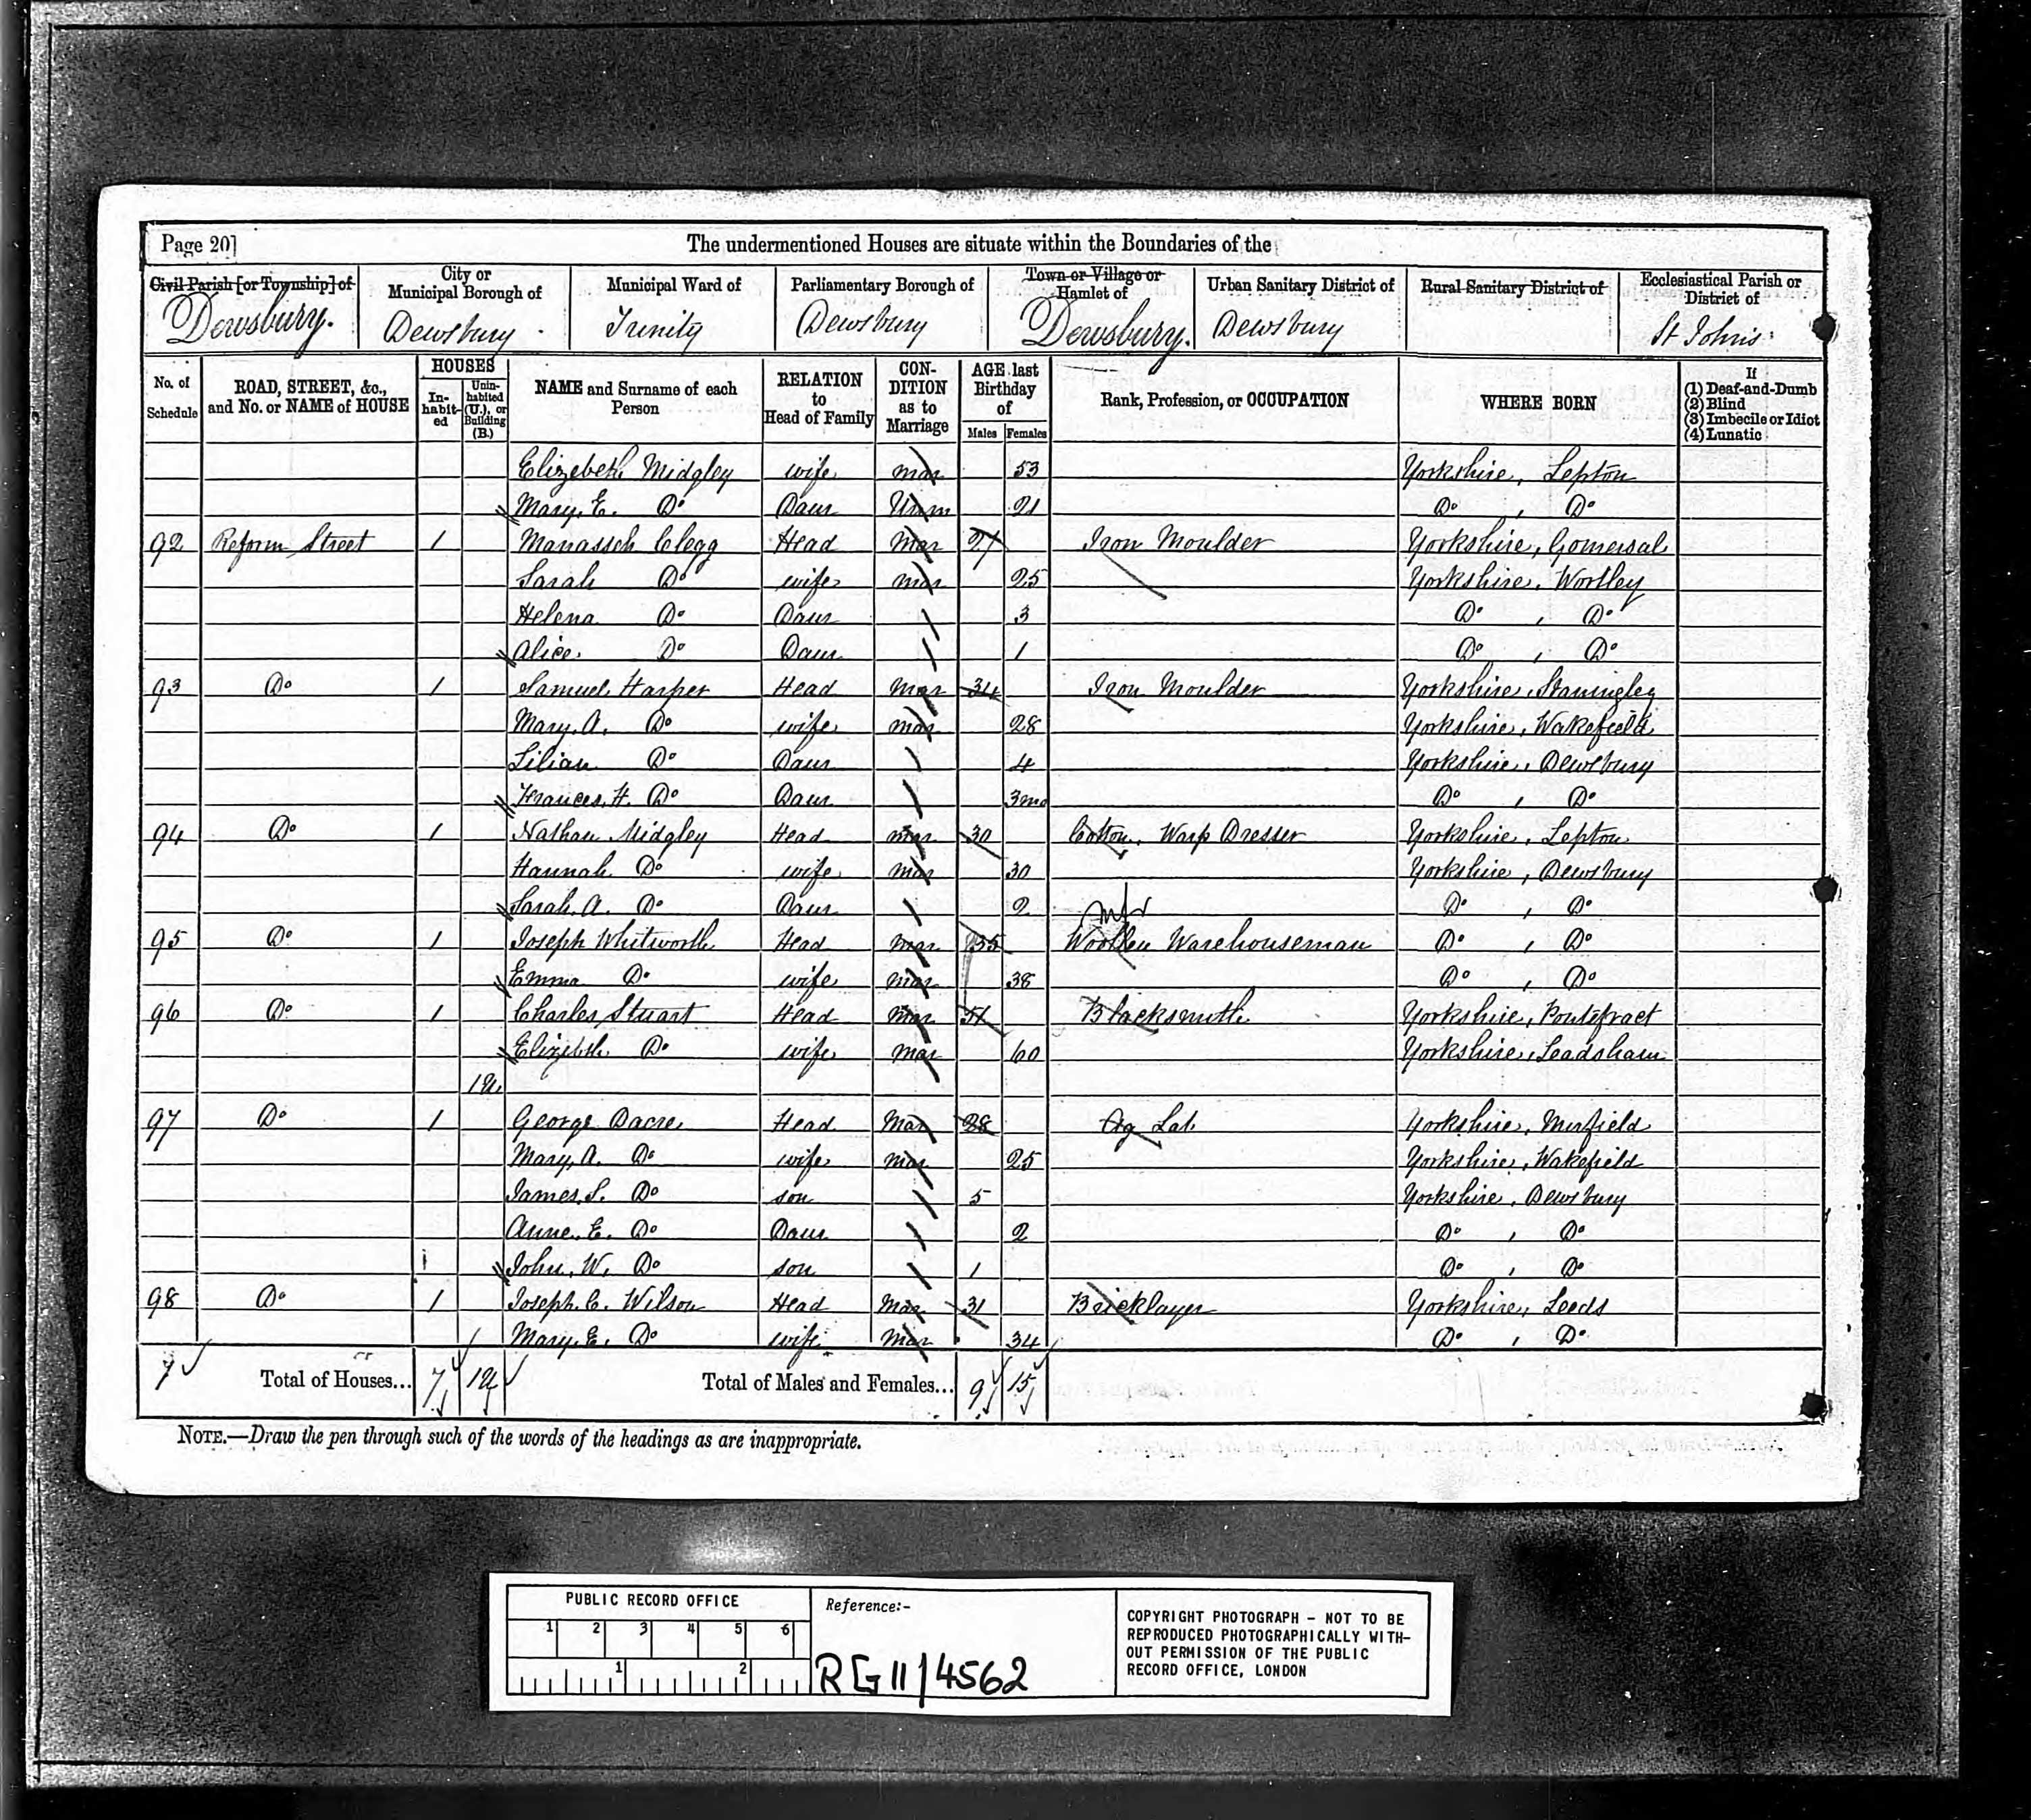 Page 20]
The undermentioned Houses are situate within the Boundaries of the
Civil Parish [or Township] of
Dewsbury.
City or Municipal Borough of
Dewsbury
Municipal Ward of
Trinity
Parliamentary Borough of
Dewsbury
Town or Village or Hamlet of
Dewsbury.
Urban Sanitary District of
Dewsbury
Rural Sanitary District of
Ecclesiastical Parish or District of
St Johns
No. of Schedule
ROAD, STREET, &c., and No. or NAME of HOUSE
HOUSES
In-habit-ed
Unin-habited (U.), or Building (B.)
NAME and Surname of each Person
RELATION to Head of Family
CON-DITION as to Marriage
AGE last Birthday of
Males Females
Rank, Profession, or OCCUPATION
WHERE BORN
If
(1) Deaf-and-Dumb
(2) Blind
(3) Imbecile or Idiot
(4) Lunatic
Elizebeth Midgley wife mar 53 Yorkshire, Lepton
Mary, E. Do Daur Unm 21 Do , Do
92 Reform Street 1 Manasseh Clegg Head Mar 27 Iron Moulder Yorkshire, Gomersal
Sarah Do wife mar 25 Yorkshire, Wortley
Helena Do Daur 3 Do , Do
Alice Do Daur 1 Do , Do
93 Do 1 Samuel Harper Head Mar 34 Iron Moulder Yorkshire, Staningley
Mary, A. Do wife mar 28 Yorkshire, Wakefield
Lilian Do Daur 4 Yorkshire, Dewsbury
Frances, H. Do Daur 3mo Do , Do
94 Do 1 Nathan Midgley Head mar 30 Cotton, Warp Dresser Yorkshire, Lepton
Hannah Do wife mar 30 Yorkshire, Dewsbury
Sarah, A. Do Daur 2 Do , Do
95 Do 1 Joseph Whitworth Head mar 35 Woollen Warehouseman Do , Do
Emma Do wife mar 38 Do , Do
96 Do 1 Charles Stuart Head Mar 51 Blacksmith Yorkshire, Pontefract
Elizbth Do wife mar 60 Yorkshire, Leadsham
1 U.
97 Do 1 George Dacre Head Mar 28 Ag Lab Yorkshire, Mirfield
Mary, A. Do wife mar 25 Yorkshire, Wakefield
James, S. Do son 5 Yorkshire, Dewsbury
Anne, E. Do Daur 2 Do , Do
John, W. Do son 1 Do , Do
98 Do 1 Joseph, C. Wilson Head Mar 31 Bricklayer Yorkshire, Leeds
Mary, E. Do wife Mar 34 Do , Do
7 Total of Houses... 7 1U Total of Males and Females... 9 15
NOTE.—Draw the pen through such of the words of the headings as are inappropriate.
PUBLIC RECORD OFFICE
1 2 3 4 5 6
1 2
Reference:-
RG 11/4562
COPYRIGHT PHOTOGRAPH - NOT TO BE
REPRODUCED PHOTOGRAPHICALLY WITH-
OUT PERMISSION OF THE PUBLIC
RECORD OFFICE, LONDON